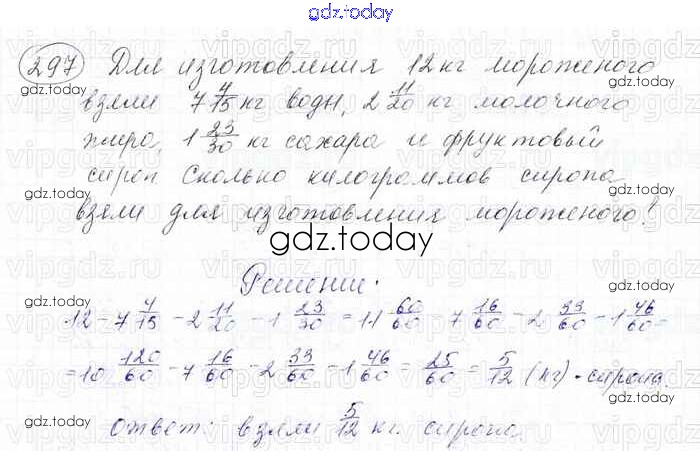 gdz.today
297 Для изготовления 12 кг мороженого
взяли 7 4/15 кг воды, 2 11/20 кг молочного
жира, 1 23/30 кг сахара и фруктовый
сироп. Сколько килограммов сиропа
взяли для изготовления мороженого?
gdz.today
Решение:
12 - 7 4/15 - 2 11/20 - 1 23/30 = 11 60/60 - 7 16/60 - 2 33/60 - 1 46/60 =
= 10 120/60 - 7 16/60 - 2 33/60 - 1 46/60 = 25/60 = 5/12 (кг) - сиропа.
Ответ: взяли 5/12 кг. сиропа.